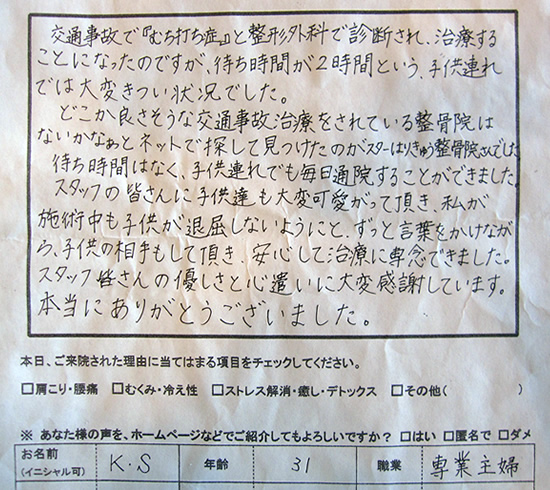 交通事故で『むち打ち症』と整形外科で診断され、治療する
ことになったのですが、待ち時間が2時間という、子供連れ
では大変きつい状況でした。
どこか良さそうな交通事故治療をされている整骨院は
ないかなぁとネットで探して見つけたのがスターはりきゅう整骨院さんでした。
待ち時間はなく、子供連れでも毎日通院することができました。
スタッフの皆さんに子供達も大変可愛がって頂き、私が
施術中も子供が退屈しないようにと、ずっと言葉をかけなが
ら、子供の相手もして頂き、安心して治療に専念できました。
スタッフ皆さんの優しさと心遣いに大変感謝しています。
本当にありがとうございました。
本日、ご来院された理由に当てはまる項目をチェックしてください。
□肩こり・腰痛 □むくみ・冷え性 □ストレス解消・癒し・デトックス □その他( )
※ あなた様の声を、ホームページなどでご紹介してもよろしいですか? □はい □匿名で □ダメ
お名前 (イニシャル可) K・S 年齢 31 職業 専業主婦